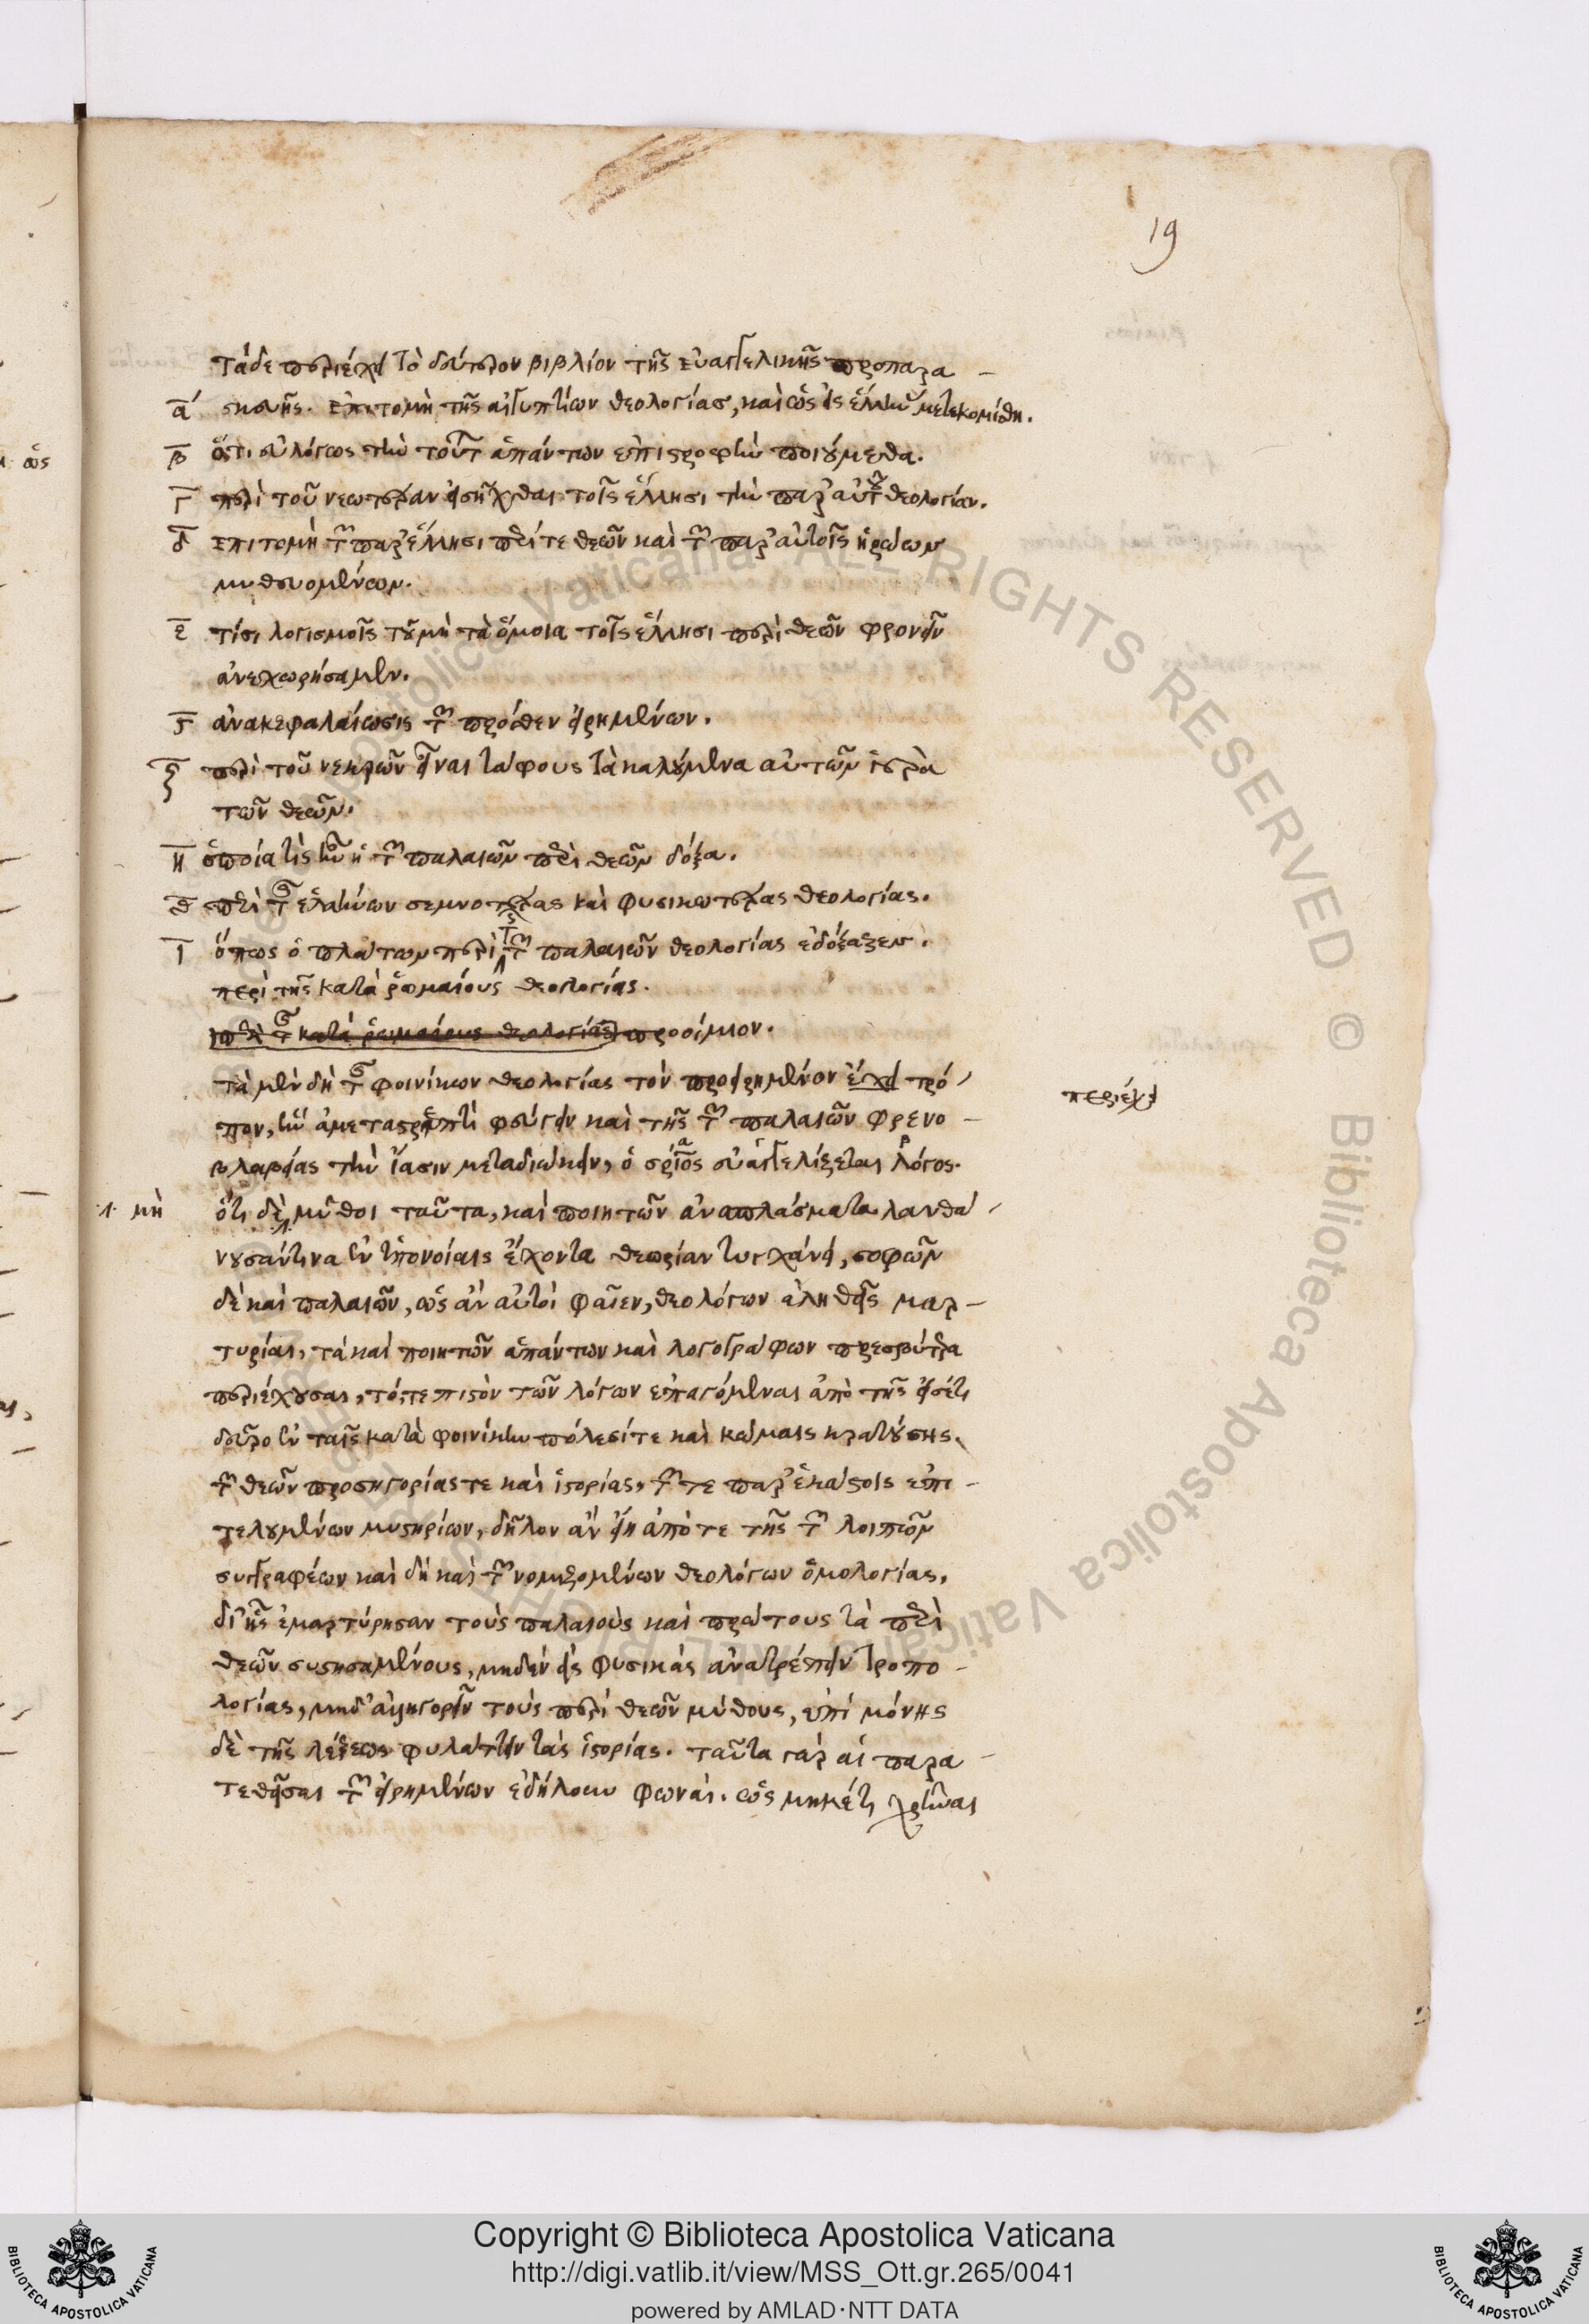 19
Τάδε περιέχει τὸ δεύτερον βιβλίον τῆς εὐαγγελικῆς προπαρα-
ᾱ σκευῆς. ἐπιτομὴ τῆς αἰγυπτίων θεολογίας, καὶ ὡς εἰς ἕλληνας μετεκομίσθη.
β̄ ὅτι εὐλόγως τὴν τούτων ἁπάντων ἐπιστροφὴν ποιούμεθα.
γ̄ περὶ τοῦ νεωτέραν εἰσῆχθαι τοῖς ἕλλησι τὴν παρ' αὐτῶν θεολογίαν.
δ̄ ἐπιτομὴ τῶν παρ' ἕλλησι περί τε θεῶν καὶ τῶν παρ' αὐτοῖς ἡρώων
μυθευομένων.
ε̄ τίσι λογισμοῖς τοῦ μὴ τὰ ὅμοια τοῖς ἕλλησι περὶ θεῶν φρονεῖν
ἀνεχωρήσαμεν.
ς̄ ἀνακεφαλαίωσις τῶν πρόσθεν εἰρημένων.
ζ̄ περὶ τοῦ νεκρῶν εἶναι τάφους τὰ καλούμενα αὐτῶν ἱερὰ
τῶν θεῶν.
η̄ ὁποία τὶς ἦν ἡ τῶν παλαιῶν περὶ θεῶν δόξα.
θ̄ περὶ τῆς ἑλλήνων σεμνοτέρας καὶ φυσικωτέρας θεολογίας.
ῑ ὅπως ὁ πλάτων περὶ τῆς τῶν παλαιῶν θεολογίας ἐδόξαζεν.
περὶ τῆς κατὰ ῥωμαίους θεολογίας.
περὶ τῆς κατὰ ῥωμαίους θεολογίας προοίμιον.
τὰ μὲν δὴ τῆς φοινίκων θεολογίας τὸν προειρημένον ἔχει τρό-
περιέχει
πον, ἣν ἀμεταστρεπτὶ φεύγειν καὶ τῆς τῶν παλαιῶν φρενο-
βλαβείας τὴν ἴασιν μεταδιώκειν, ὁ σωτήριος εὐαγγελίζεται λόγος.
μὴ ὅτι δὲ μῦθοι ταῦτα, καὶ ποιητῶν ἀναπλάσματα λανθά-
νουσάν τινα ἐν ὑπονοίαις ἔχοντα θεωρίαν τυγχάνει, σοφῶν
δὲ καὶ παλαιῶν, ὡς ἂν αὐτοὶ φαῖεν, θεολόγων ἀληθεῖς μαρ-
τυρίαι, τὰ καὶ ποιητῶν ἁπάντων καὶ λογογράφων πρεσβύτερα
περιέχουσαι, τό, τε πιστὸν τῶν λόγων ἐπαγόμεναι ἀπὸ τῆς εἰσέτι
δεῦρο ἐν ταῖς κατὰ φοινίκην πόλεσί τε καὶ κώμαις κρατούσης
τῶν θεῶν προσηγορίας τε καὶ ἱστορίας, τῶν τε παρ' ἑκάστοις ἐπι-
τελουμένων μυστηρίων, δῆλον ἂν εἴη ἀπό τε τῆς τῶν λοιπῶν
συγγραφέων καὶ δὴ καὶ τῶν νομιζομένων θεολόγων ὁμολογίας,
δι' ἧς ἐμαρτύρησαν τοὺς παλαιοὺς καὶ πρώτους τὰ περὶ
θεῶν συστησαμένους, μηδὲν εἰς φυσικὰς ἀνατρέπειν τροπο-
λογίας, μηδ' ἀλληγορεῖν τοὺς περὶ θεῶν μύθους, ἐπὶ μόνης
δὲ τῆς λέξεως φυλάττειν τὰς ἱστορίας. ταῦτα γὰρ αἱ παρα-
τεθεῖσαι τῶν εἰρημένων ἐδήλουν φωναί. ὡς μηκέτι χρῆναι
Copyright © Biblioteca Apostolica Vaticana
http://digi.vatlib.it/view/MSS_Ott.gr.265/0041
powered by AMLAD·NTT DATA